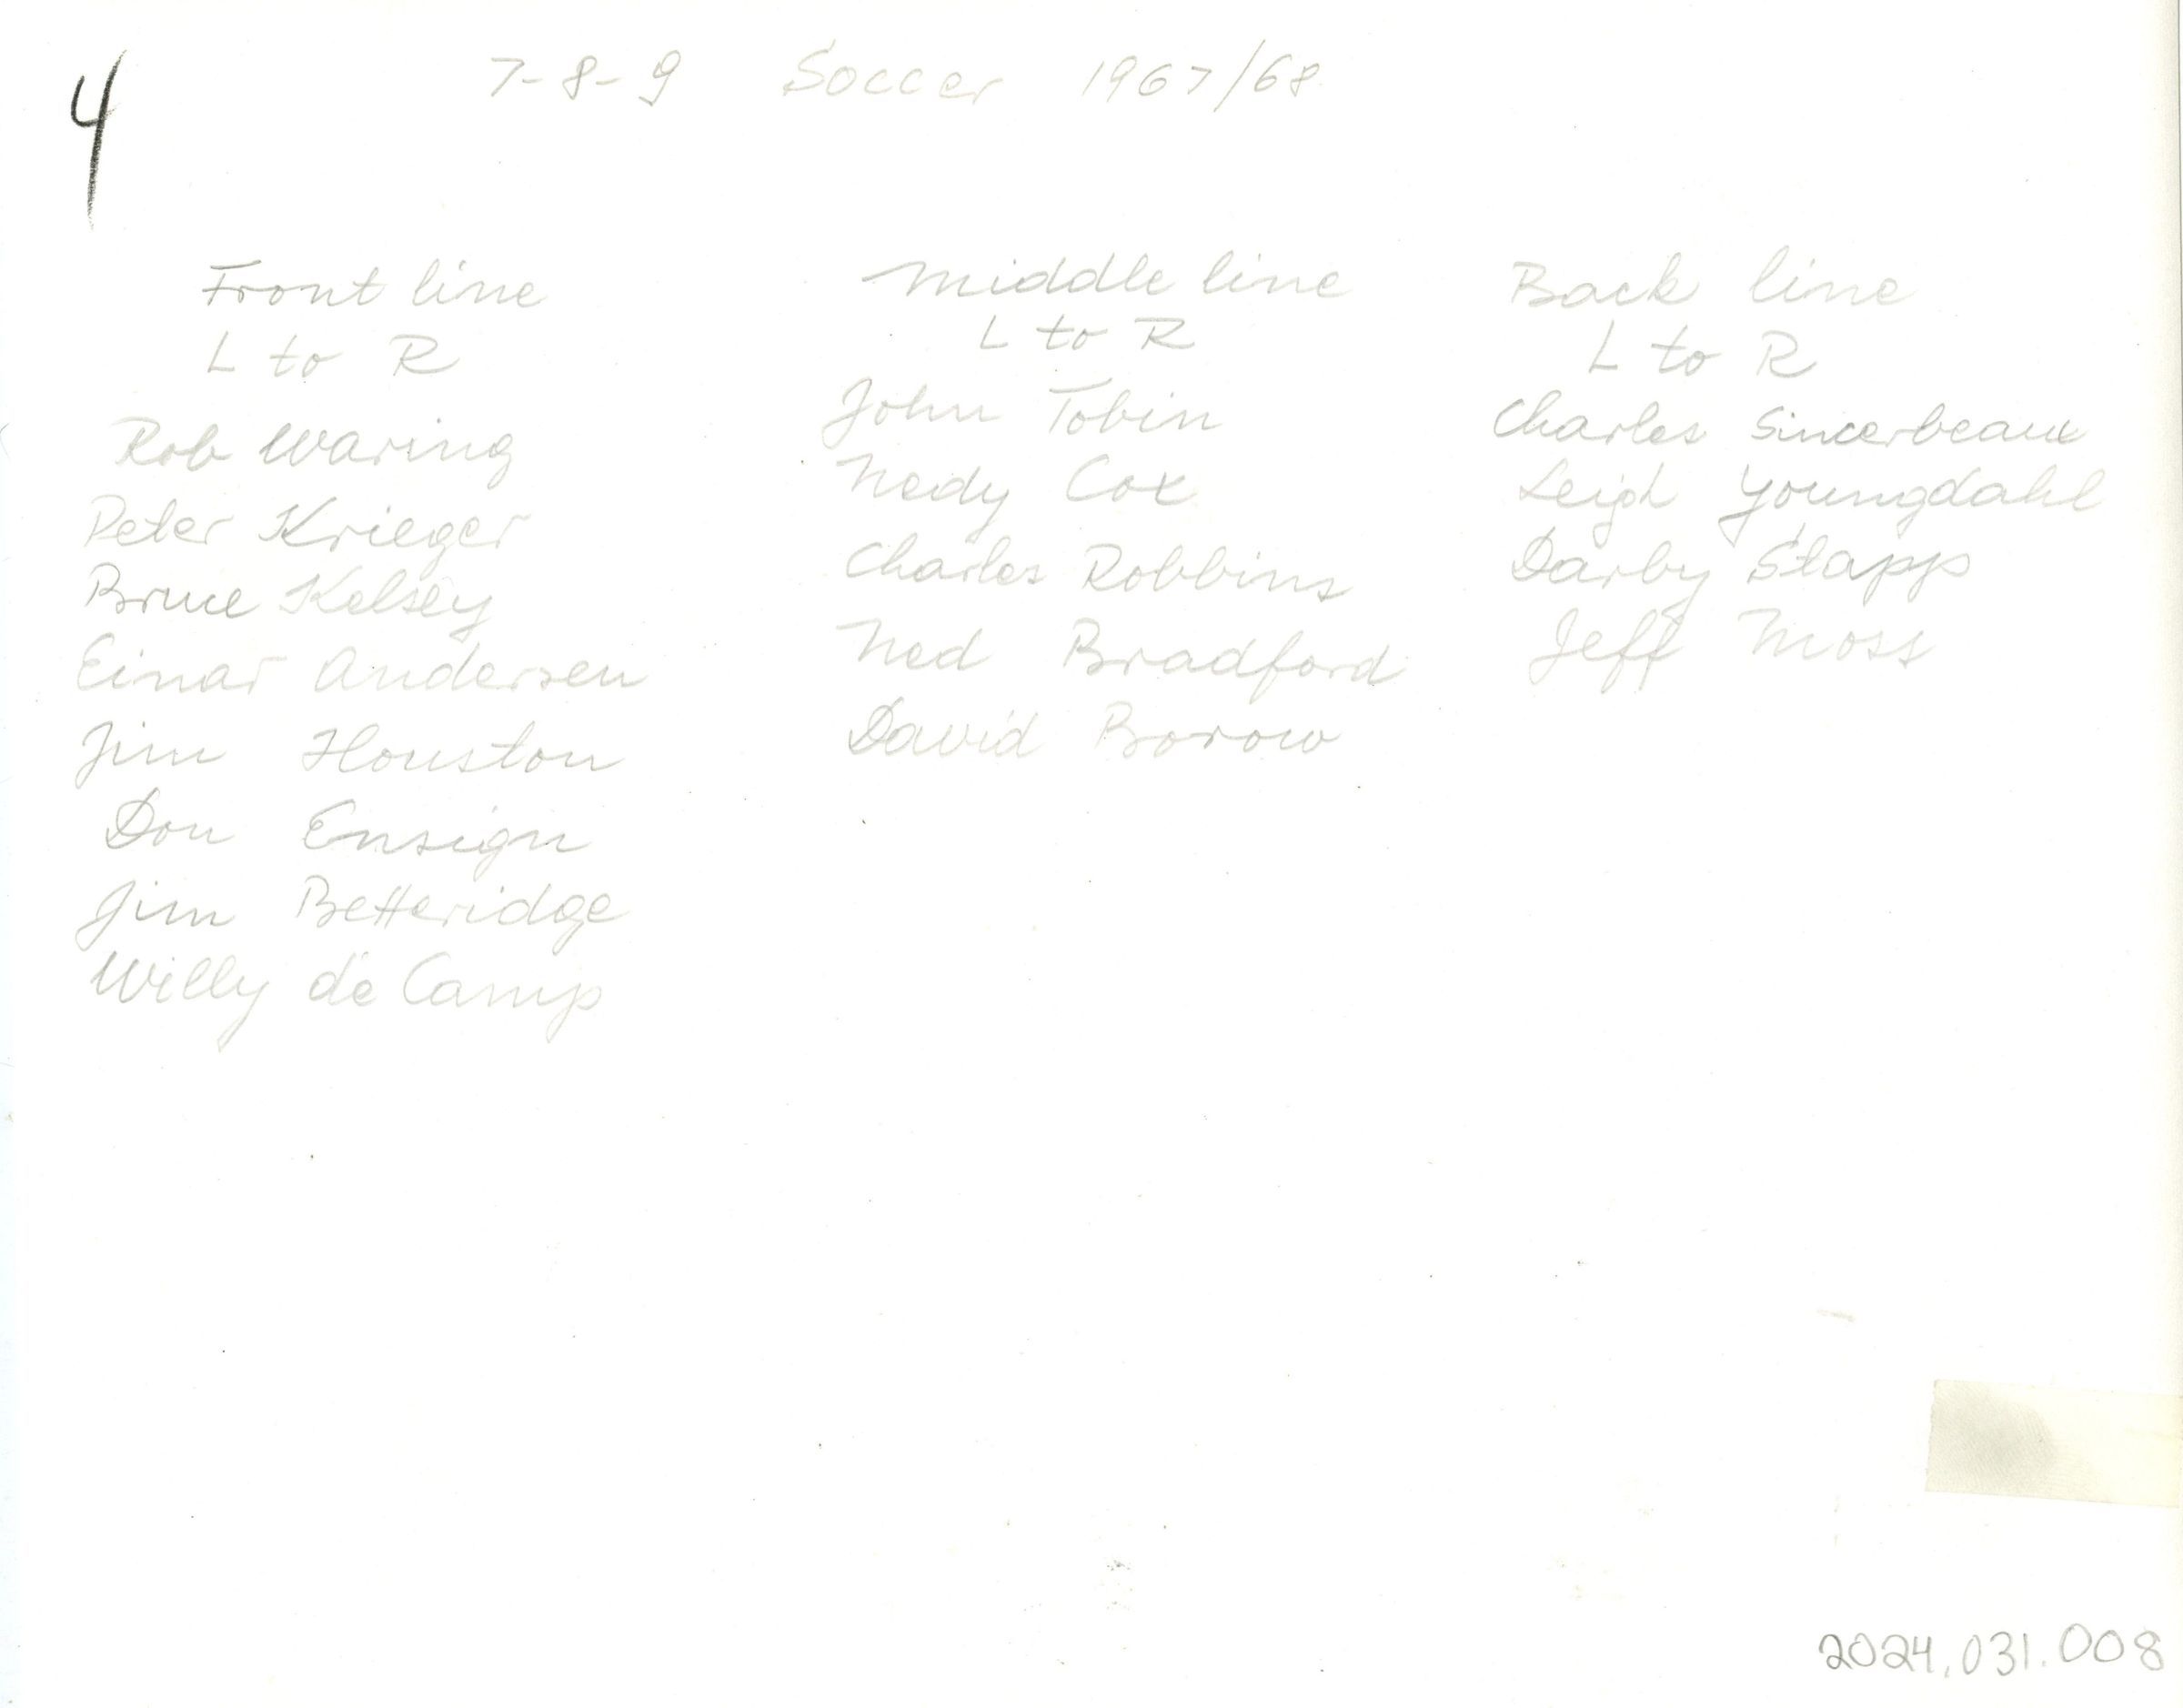 4
7-8-9 Soccer 1967/68
Front line
L to R
Rob Waring
Peter Krieger
Bruce Kelsey
Einar Andersen
Jim Houston
Don Ensign
Jim Betteridge
Willy de Camp
Middle line
L to R
John Tobin
Nedy Cox
Charles Robbins
Ned Bradford
David Borow
Back line
L to R
Charles Sincerbeaux
Leigh Youngdahl
Darby Stapp
Jeff Moss
2024.031.008